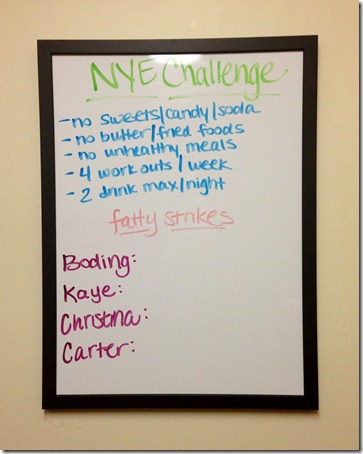 NYE Challenge
- no sweets/candy/soda
- no butter/fried foods
- no unhealthy meals
- 4 work outs / week
- 2 drink max/night
fatty strikes
Boding:
Kaye:
Christina:
Carter: